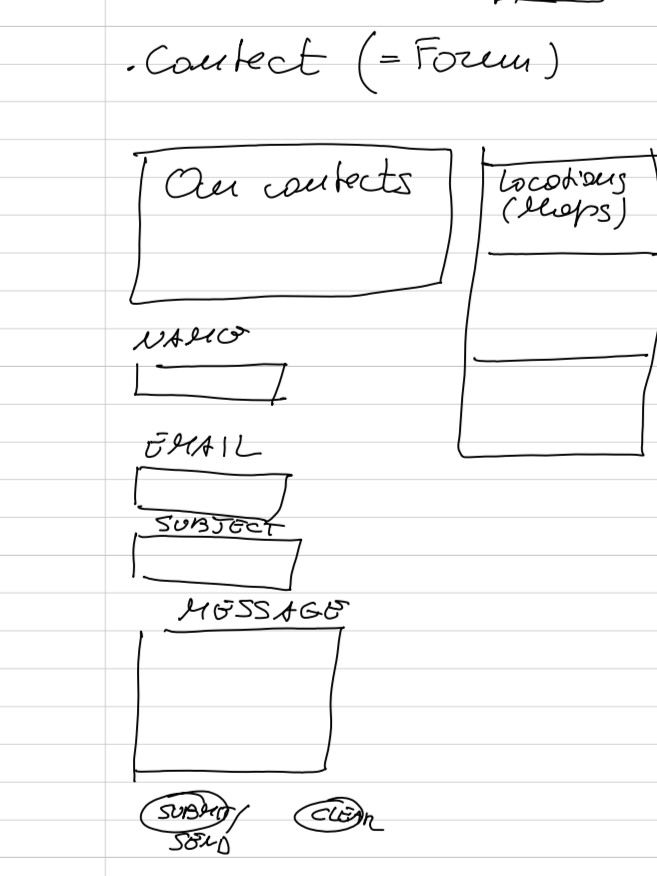 . Contact (= Forum)
Our contacts
Locations
(Maps)
NAME
EMAIL
SUBJECT
MESSAGE
SUBMIT/
SEND
CLEAR